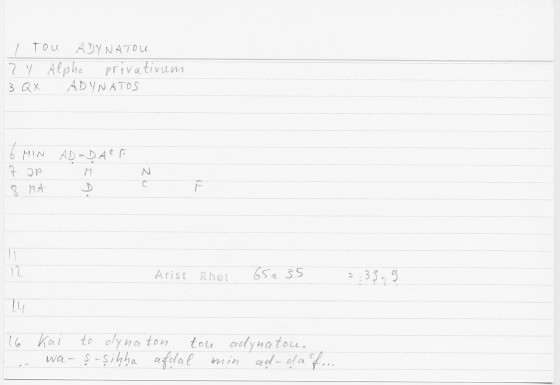 1 TOU ADYNATOU
2 Y Alpha privativum
3 QX ADYNATOS
6 MIN AḌ-ḌAᶜF
7 JP M N
8 MA Ḍ C F
11
12 Arist Rhet 65a 35 = 33, 9
14
16 Kai to dynaton tou adynatou.
.. wa- ṣ-ṣiḥḥa afḍal min aḍ-ḍaᶜf...